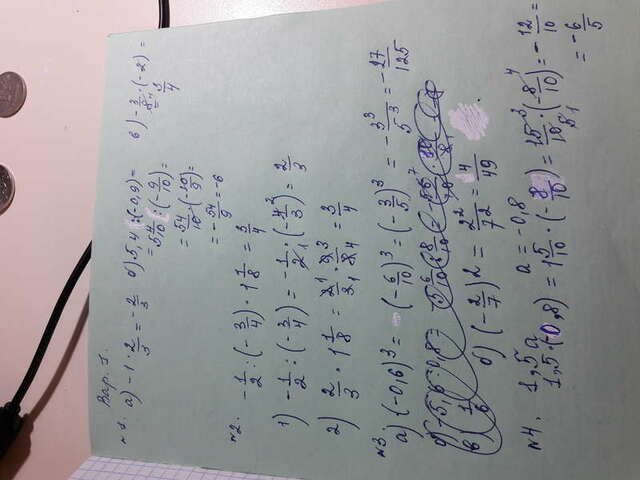 Вар. 1.
№1. а) -1 · 2/3 = -2/3 б) 5,4 : (-0,9) = в) -3/8 · (-2) =
= 5 4/10 : (-9/10) = = 3/4
= 54/10 · (-10/9) =
= -54/9 = -6
№2.
-1/2 : (-3/4) · 1 1/8 = 3/4
1) -1/2 : (-3/4) = -1/2 · (-4/3) = 2/3
2) 2/3 · 1 1/8 = 2/3 · 9/8 = 3/4
№3
а) (-0,6)³ = (-6/10)³ = (-3/5)³ = -3³/5³ = -27/125
б) (-2/7)² = 2²/7² = 4/49 .
№4. 1,5a a = -0,8
1,5 · (-0,8) = 1 5/10 · (-8/10) = 15/10 · (-8/10) = -12/10 =
= -6/5